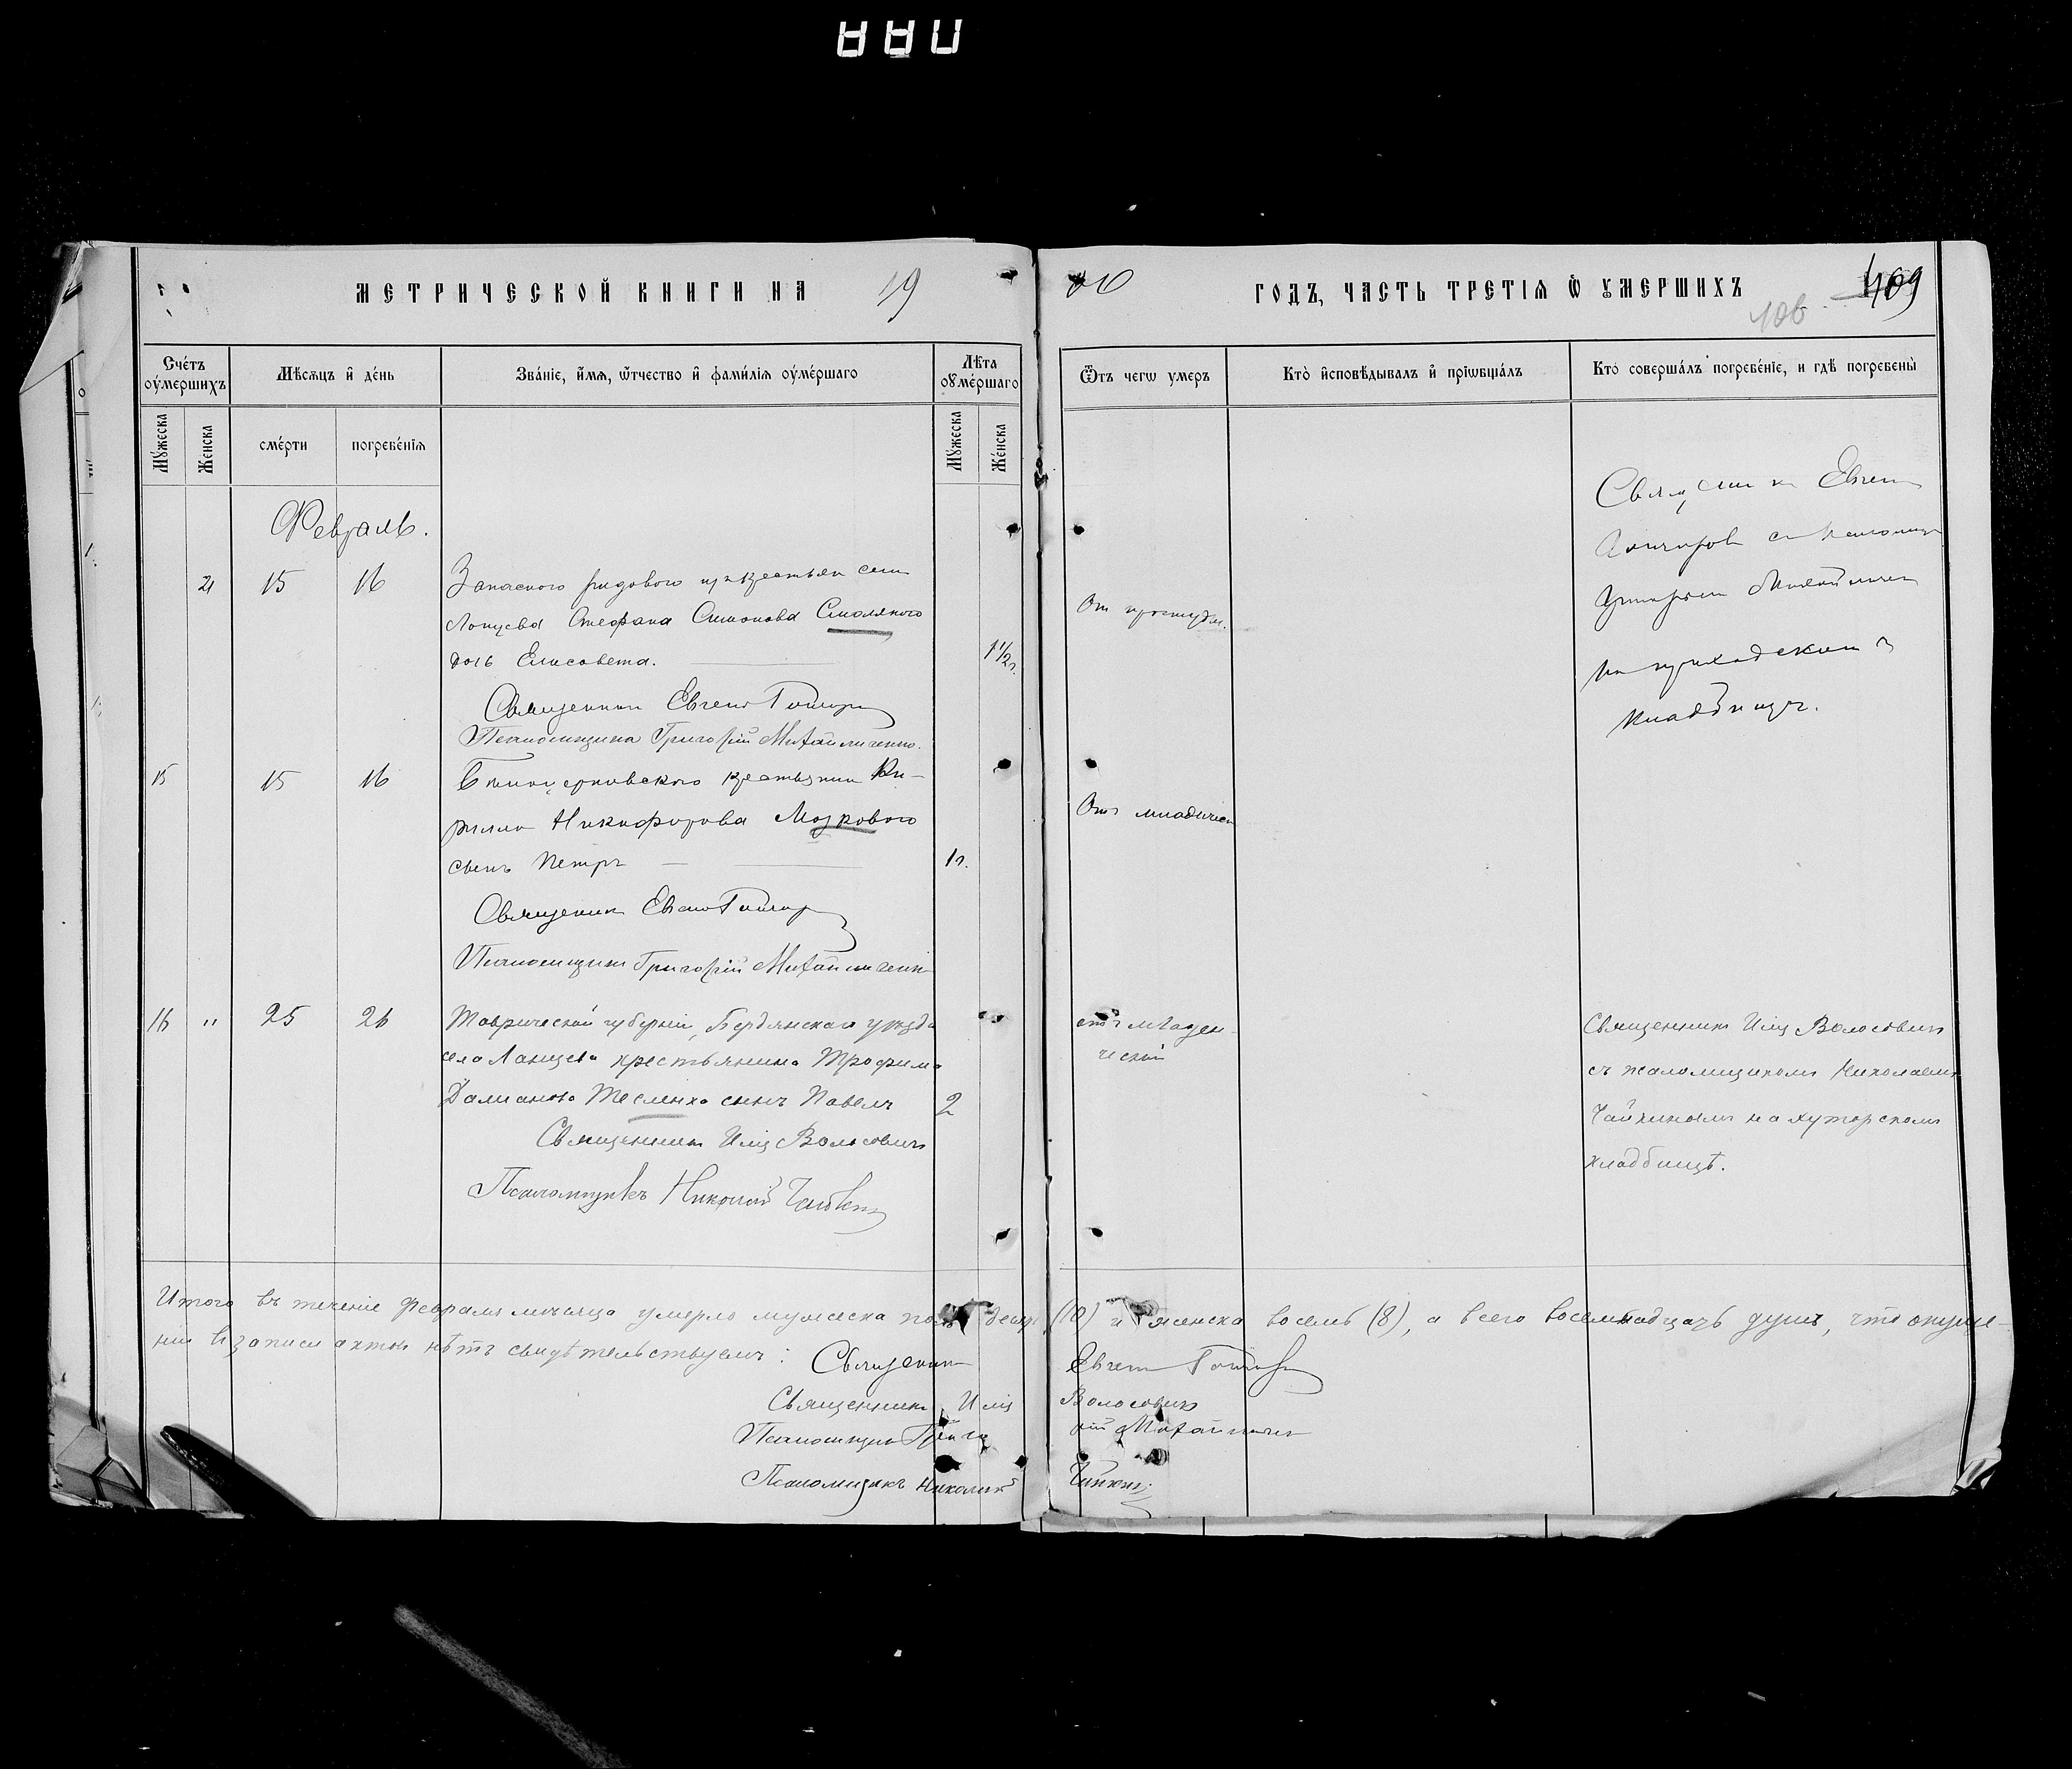 МЕТРИЧЕСКОЙ КНИГИ НА 19
00 ГОДЪ, ЧАСТЬ ТРЕТІЯ Ѿ ꙋМЕРШИХЪ
106
109
Счетъ оумершихъ
Мѣсяцъ и день
Званіе, имя, ѿтчество и фамилія оумершаго
Лѣта оумершаго
Ѿтъ чегѡ умеръ
Кто исповѣдывалъ и пріѡбщалъ
Кто совершалъ погребеніе, и гдѣ погребены
Мꙋжеска
Женска
смерти
погребенія
Мꙋжеска
Женска
Февраль.
21 15 16 Запаснаго рядового изъ крестьян села
Стефана Симонова Смоляного
дочь Елисавета. 1 1/2 г.
От простуды.
Священник Евгений
Псаломщикъ Григорій Михайличенко.
Священник Евгений
на приходском
кладбищѣ.
15 15 16 крестьянина Ки-
рилла Никифорова Мозкового
сынъ Петръ 1 г.
Отъ младенч
Священник
Псаломщик Григорій Михайличенко
16 " 25 26 Таврической губерніи, Бердянскаго уѣзда
села Ланцева крестьянина Трофима
Даміанова Тесленко сынъ Павелъ 2
Священникъ Илія Волосовичъ
Псаломщикъ Николай Чайкин
отъ младен-
ческой
Священникъ Илія Волосовичъ
съ псаломщикомъ Николаемъ
Чайкинымъ на хуторскомъ
кладбищѣ.
Итого въ теченіе февраля мѣсяца умерло мужеска пола десять (10) и женска восемь (8), а всего восемнадцать душъ, что опуще-
ній въ записи актов нѣтъ свидѣтельствуемъ: Священник Евгений
Священникъ Илія Волосовичъ
Псаломщикъ Григорій Михайличенко
Псаломщикъ Николай Чайкин